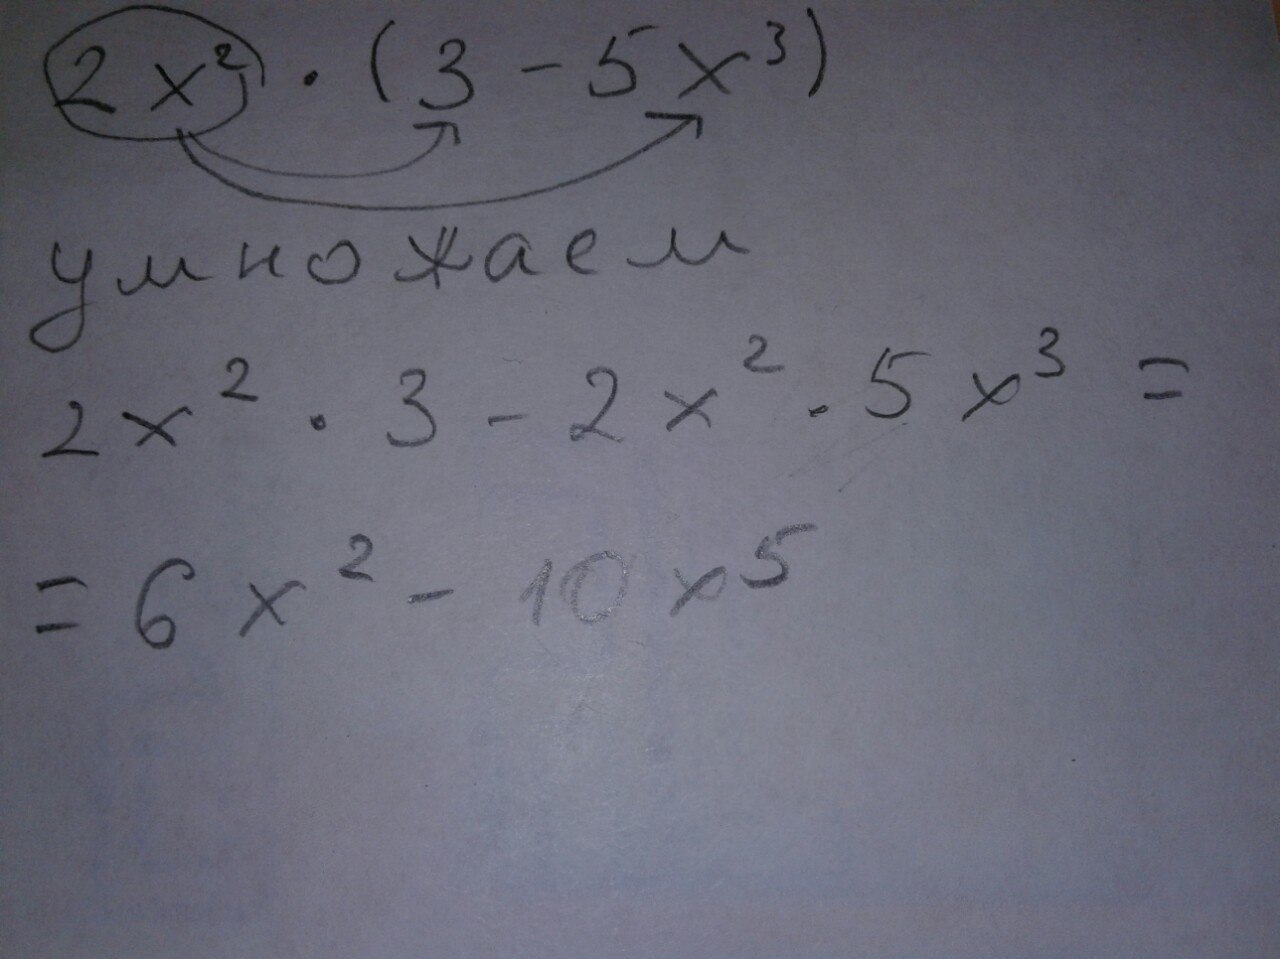 2x² · (3 - 5x³)
умножаем
2x² · 3 - 2x² · 5x³ =
= 6x² - 10x⁵